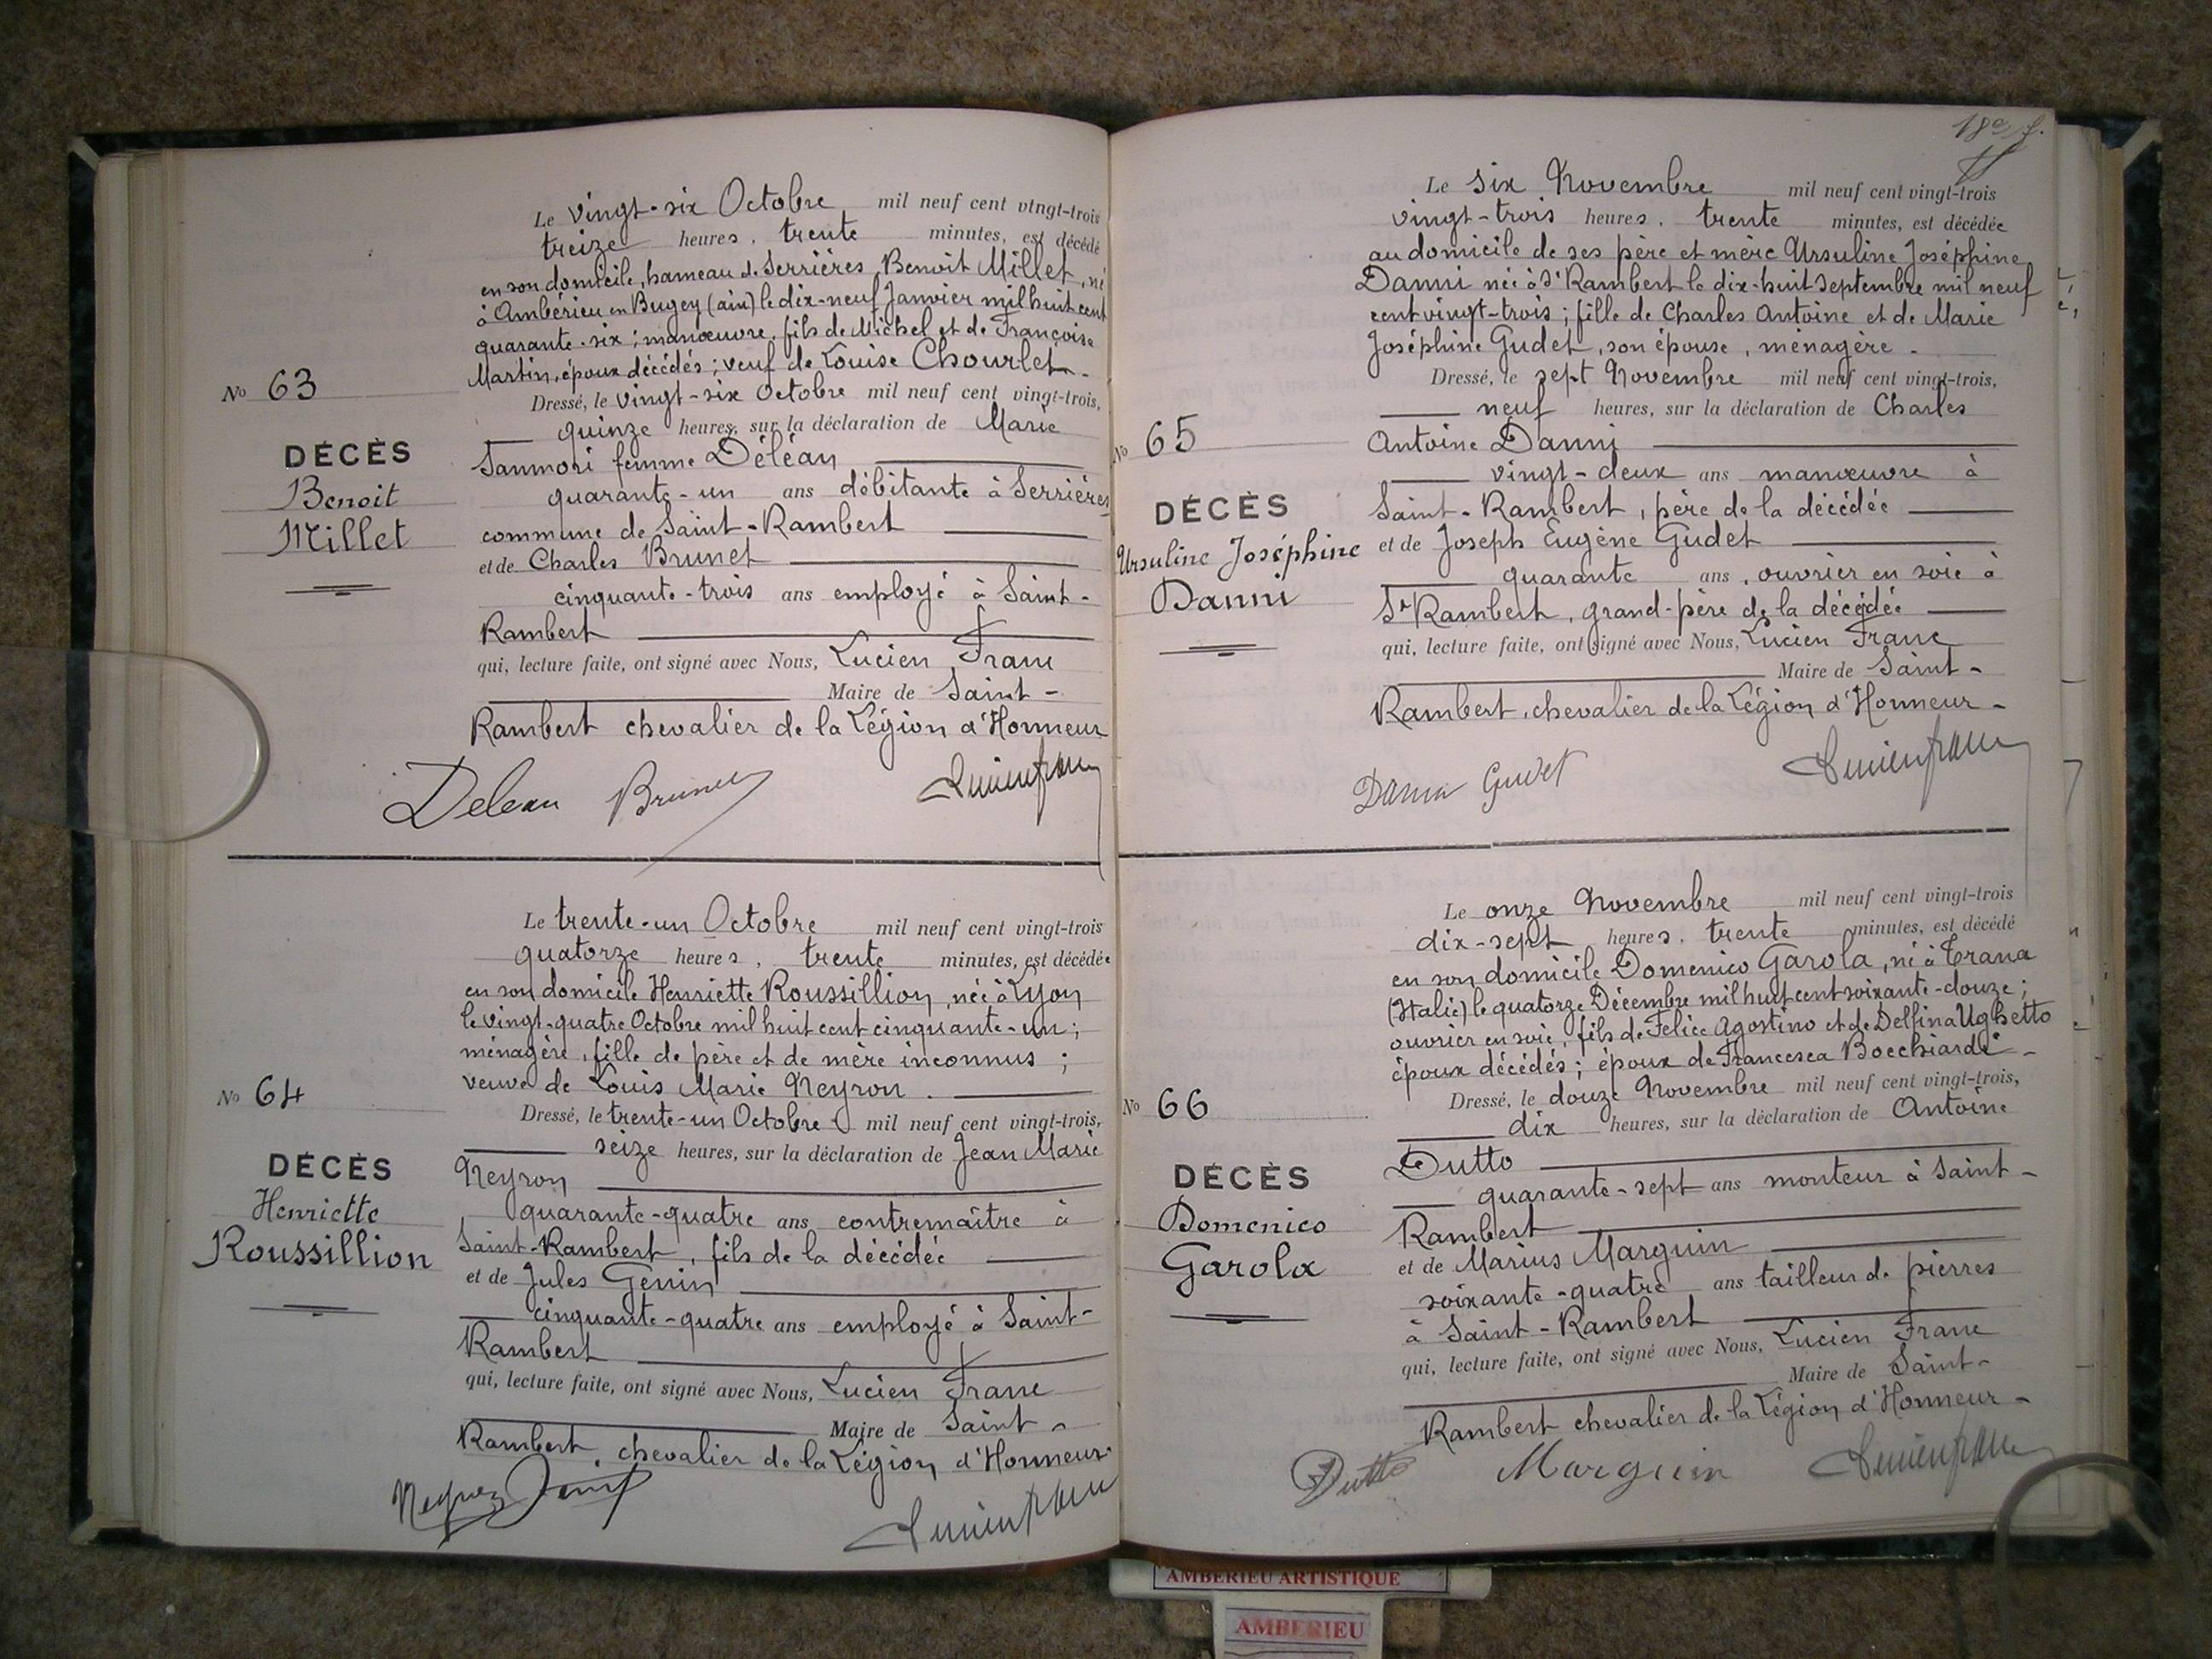 Le vingt-six Octobre mil neuf cent vingt-trois
treize heures, trente minutes, est décédé
en son domicile, hameau de Serrières, Benoit Millet, né
à Ambérieu en Bugey (ain) le dix-neuf Janvier mil huit cent
quarante-six ; manœuvre, fils de Michel et de Françoise
Martin, époux décédés ; veuf de Louise Chourlet.
No 63
DÉCÈS
Benoit
Millet
Dressé, le vingt-six Octobre mil neuf cent vingt-trois,
quinze heures, sur la déclaration de Marie
Sanmori femme Déléan
quarante-un ans débitante à Serrières
commune de Saint-Rambert
et de Charles Brunet
cinquante-trois ans employé à Saint-
Rambert
qui, lecture faite, ont signé avec Nous, Lucien Franc
Maire de Saint-
Rambert chevalier de la Légion d'Honneur
Delean Brunet Lucien franc
Le trente-un Octobre mil neuf cent vingt-trois
quatorze heures, trente minutes, est décédée
en son domicile Henriette Roussillion, née à Lyon
le vingt-quatre Octobre mil huit cent cinquante-un ;
ménagère, fille de père et de mère inconnus ;
veuve de Louis Marie Neyron.
No 64
DÉCÈS
Henriette
Roussillion
Dressé, le trente-un Octobre mil neuf cent vingt-trois,
seize heures, sur la déclaration de Jean Marie
Neyron
quarante-quatre ans, contremaître à
Saint-Rambert, fils de la décédée
et de Jules Genin
cinquante-quatre ans employé à Saint-
Rambert
qui, lecture faite, ont signé avec Nous, Lucien Franc
Maire de Saint-
Rambert, chevalier de la Légion d'Honneur
Lucien franc
18e f.
Le six Novembre mil neuf cent vingt-trois
vingt-trois heures, trente minutes, est décédée
au domicile de ses père et mère Ursuline Joséphine
Danni née à St Rambert le dix-huit Septembre mil neuf
cent vingt-trois ; fille de Charles Antoine et de Marie
Joséphine Gudet, son épouse, ménagère.
No 65
DÉCÈS
Ursuline Joséphine
Danni
Dressé, le sept Novembre mil neuf cent vingt-trois,
neuf heures, sur la déclaration de Charles
Antoine Danni
vingt-deux ans manœuvre à
Saint-Rambert, père de la décédée
et de Joseph Eugène Gudet
quarante ans, ouvrier en soie à
St Rambert, grand-père de la décédée
qui, lecture faite, ont signé avec Nous, Lucien Franc
Maire de Saint-
Rambert, chevalier de la Légion d'Honneur
Gudet Lucien franc
Le onze Novembre mil neuf cent vingt-trois
dix-sept heures, trente minutes, est décédé
en son domicile Domenico Garola, né à Trana
(Italie) le quatorze Décembre mil huit cent soixante-douze ;
ouvrier en soie, fils de Felice Agostino et de Delfina Ughetto
époux décédés ; époux de Francesca Bocchiardi
No 66
DÉCÈS
Domenico
Garola
Dressé, le douze Novembre mil neuf cent vingt-trois,
dix heures, sur la déclaration de Antoine
Dutto
quarante-sept ans monteur à Saint-
Rambert
et de Marius Marguin
soixante-quatre ans tailleur de pierres
à Saint-Rambert
qui, lecture faite, ont signé avec Nous, Lucien Franc
Maire de Saint-
Rambert chevalier de la Légion d'Honneur
Dutto Marguin Lucien franc
AMBERIEU ARTISTIQUE
AMBERIEU